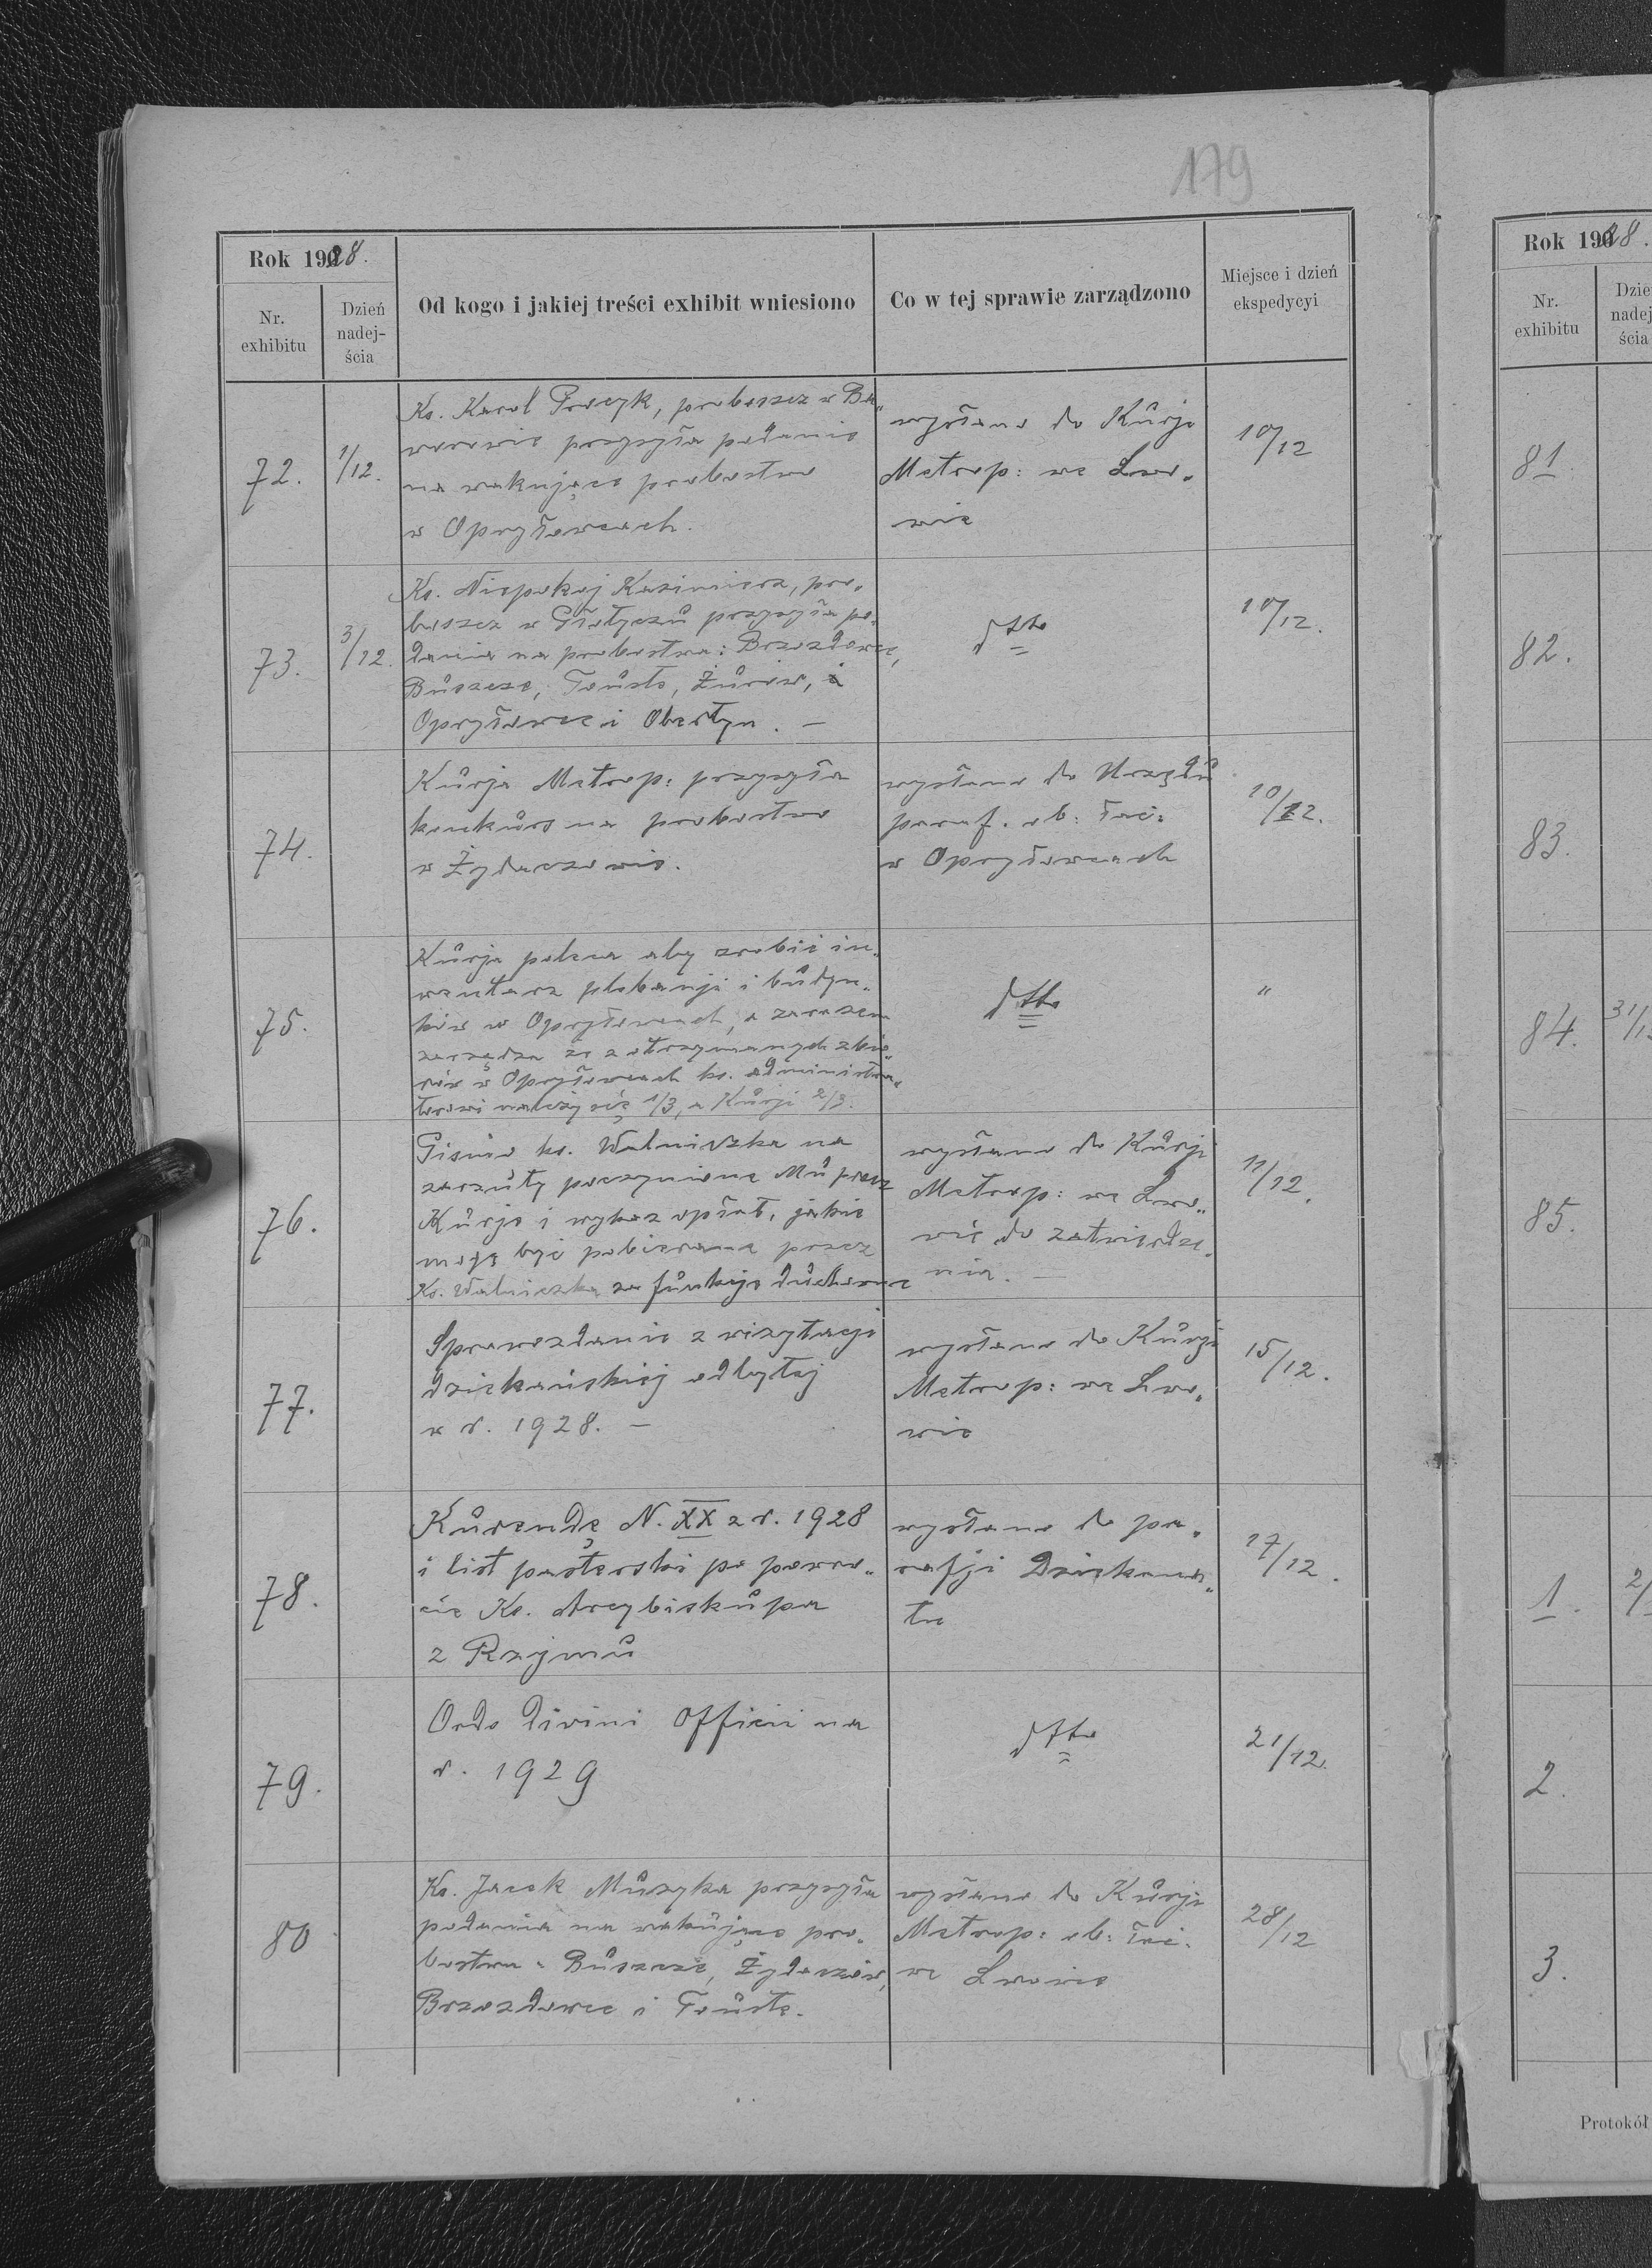 179
Rok 1928.
Nr. exhibitu
Dzień nadejścia
Od kogo i jakiej treści exhibit wniesiono
Co w tej sprawie zarządzono
Miejsce i dzień ekspedycyi
72.
1/12.
Ks. Karol Procyk, proboszcz w Ba„
worowie przysyła podanie
na wakujące probostwo
w Opryłowcach.
wysłano do Kurji
Metrop: we Lwo„
wie
10/12
73.
3/12.
Ks. Niepokój Kazimierz, pro„
boszcz w Płotyczu przysyła po„
dania na probostwa: Brzozdowce,
Buszcze, Touste, Żurów,
Opryłowce i Obertyn. —
dtto
10/12.
74.
Kurja Metrop: przysyła
konkurs na probostwo
w Żydaczowie.
wysłano do Urzędu
paraf. ob. łać:
w Opryłowcach
10/12.
75.
Kurja poleca aby zrobić in„
wentarz plebanji i budyn„
ków w Opryłowcach, a zarazem
zarządza że z otrzymanych zbio„
rów w Opryłowcach ks. administra„
torowi należy się 1/3, a Kurji 2/3.
dtto
"
76.
Pismo ks. Walniczka na
zarzuty poczynione Mu przez
Kurję i wykaz opłat, jakie
mają być pobierane przez
Ks. Walniczka za funkcje duchowne
wysłano do Kurji
Metrop: we Lwo„
wie do zatwierdze„
nia. —
11/12.
77.
Sprawozdanie z wizytacji
dziekańskiej odbytej
w r. 1928. —
wysłano do Kurji
Metrop: we Lwo„
wie
15/12.
78.
Kurendę N. XX z r. 1928
i list pasterski po powro„
cie Ks. Arcybiskupa
z Rzymu
wysłano do pa„
rafji Dziekana„
tu
17/12.
79.
Ordo divini officii na
r. 1929
dtto
21/12.
80
Ks. Jacek Muzyka przysyła
podania na wakujące pro„
bostwa: Buszcze, Żydaczów,
Brzozdowce i Touste.
wysłano do Kurji
Metrop: ob: łać.
we Lwowie
28/12
Rok 1928.
Nr. exhibitu
81.
82.
83.
84.
85.
1.
2.
3.
Protokół